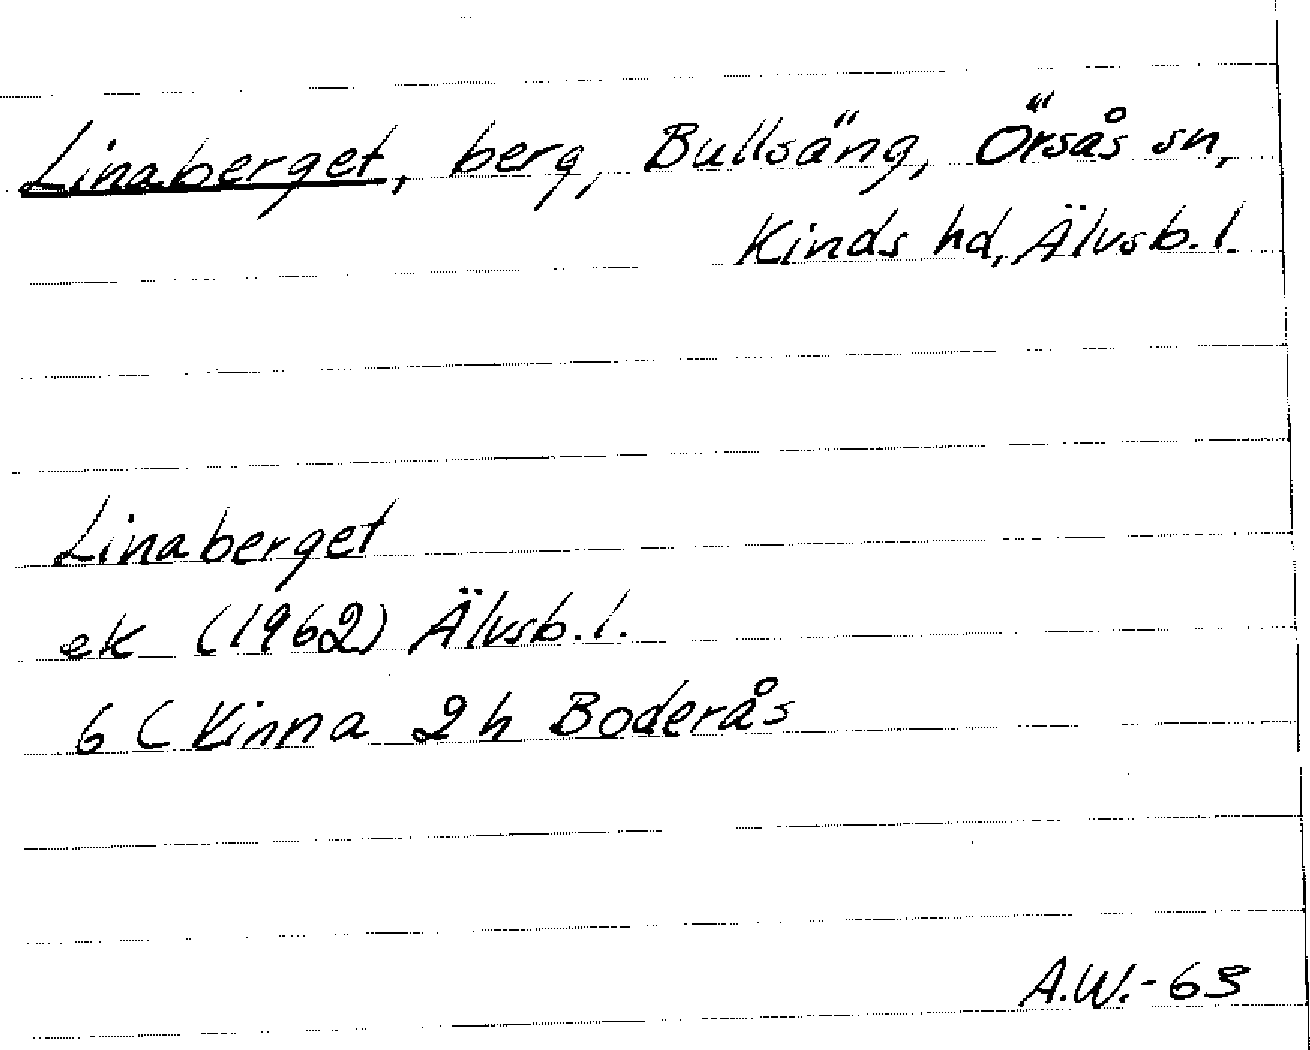 Linaberget, berg, Bullsäng, Örsås sn,
Kinds hd, Älvsb.l.
Linaberget
ek (1962) Älvsb.l.
6 C Kinna 2 h Boderås
A.W.-63